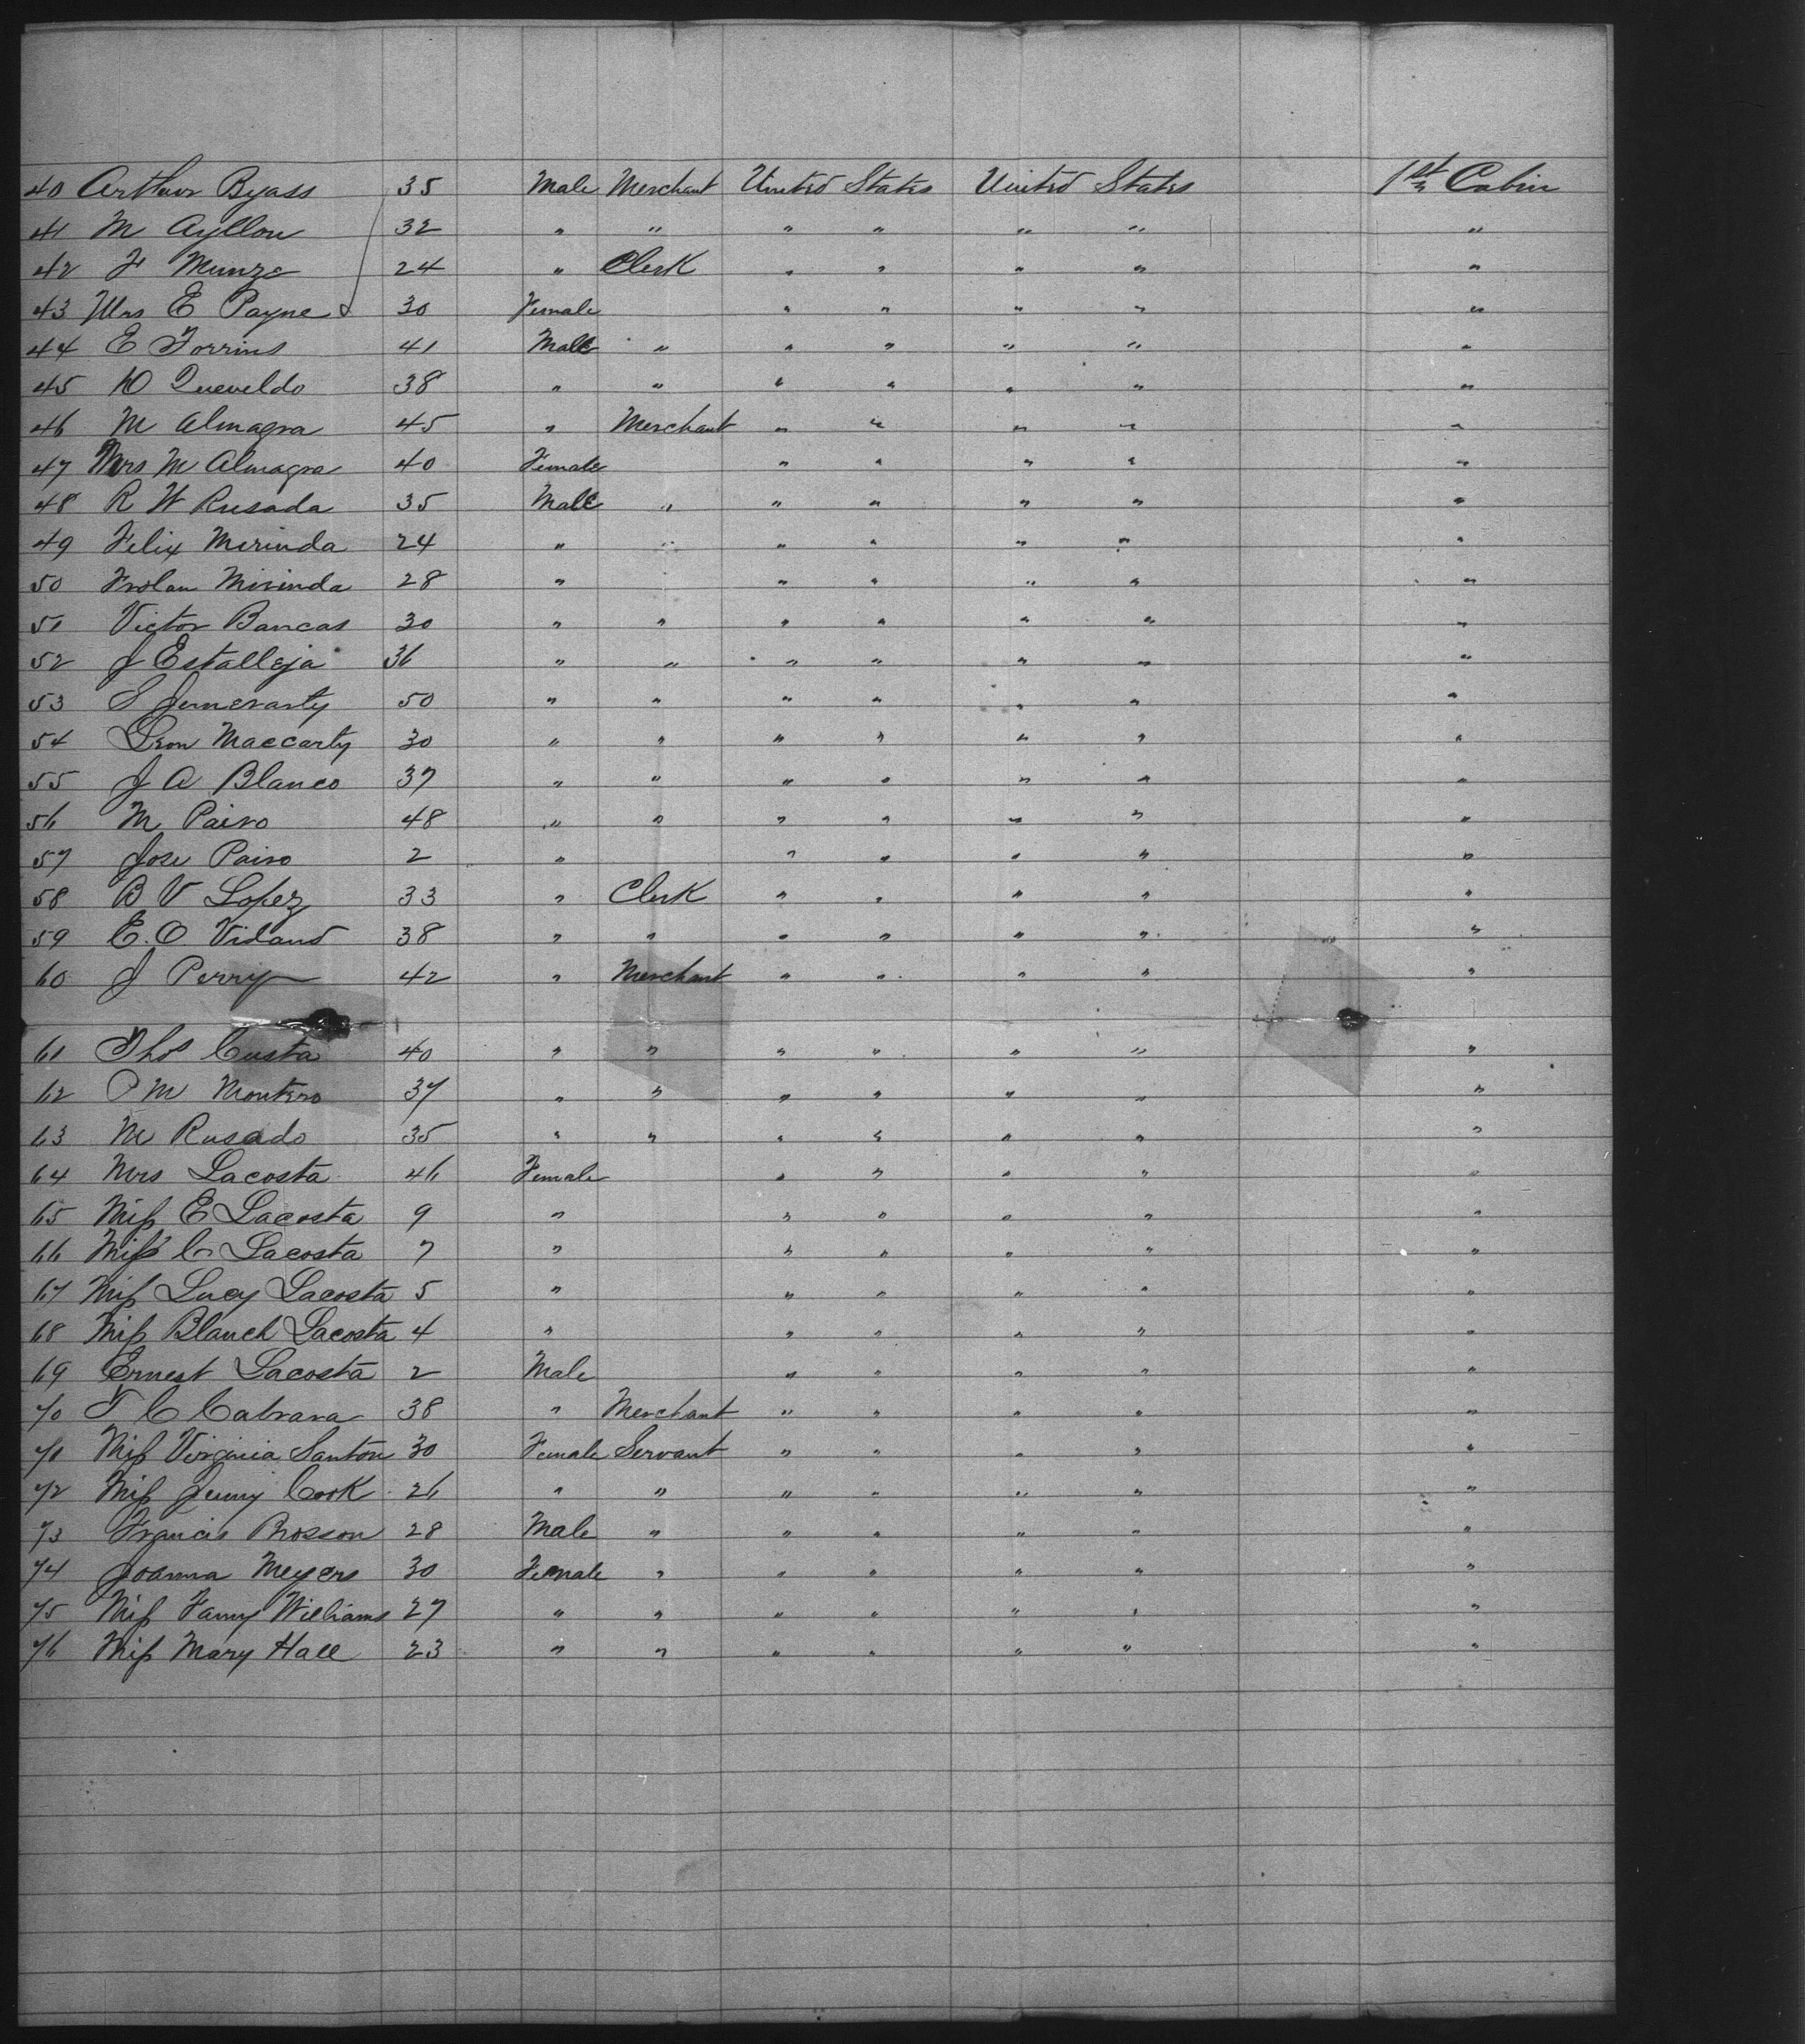 40 Arthur Byass 35 Male Merchant United States United States 1st Cabin
41 M Ayllon 32 " " " " " " "
42 F Munze 24 " Clerk " " " " "
43 Mrs E Payne 30 Female " " " " "
44 E Torrins 41 Male " " " " " "
45 Queveldo 38 " " " " " " "
46 M Almagra 45 " Merchant " " " " "
47 Mrs M Almagra 40 Female " " " " "
48 R W Rusada 35 Male " " " " " "
49 Felix Mirinda 24 " " " " " " "
50 Frolan Mirinda 28 " " " " " "
51 Victor Bancas 30 " " " " " " "
52 J Estalleja 36 " " " " " " "
53 S 50 " " " " " " "
54 Leon Maccarty 30 " " " " " " "
55 J A Blanco 37 " " " " " " "
56 M Pairo 48 " " " " " " "
57 Jose Pairo 2 " " " " " "
58 B V Lopez 33 " Clerk " " " " "
59 E. O. Vidaud 38 " " " " " " "
60 J Perry 42 " Merchant " " " " "
61 Thos Custa 40 " " " " " " "
62 P M Montero 37 " " " " " " "
63 M Rusado 35 " " " " " " "
64 Mrs Lacosta 46 Female " " " " "
65 Miss E Lacosta 9 " " " " " "
66 Miss C Lacosta 7 " " " " " "
67 Miss Lucy Lacosta 5 " " " " " "
68 Miss Blanch Lacosta 4 " " " " " "
69 Ernest Lacosta 2 Male " " " " "
70 T C Cabrara 38 " Merchant " " " " "
71 Miss Virginia Santon 30 Female Servant " " " " "
72 Miss Jenny Cook 26 " " " " " " "
73 Francis Brosson 28 Male " " " " " "
74 Joanna Meyers 30 Female " " " " " "
75 Miss Fanny Williams 27 " " " " " " "
76 Miss Mary Hall 23 " " " " " " "